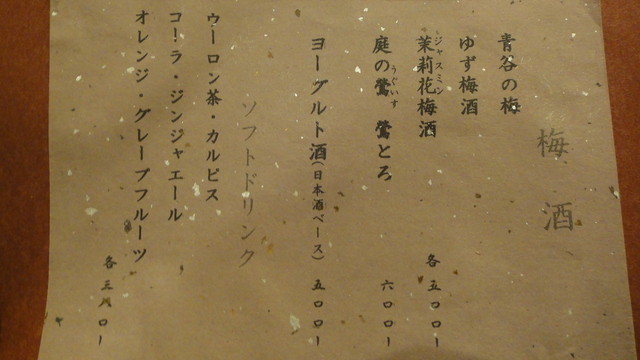 梅酒
青谷の梅
ゆず梅酒
茉莉花梅酒
ジャスミン
各五〇〇ー
庭の鶯 鶯とろ
うぐいす
六〇〇ー
ヨーグルト酒(日本酒ベース) 五〇〇ー
ソフトドリンク
ウーロン茶・カルピス
コーラ・ジンジャエール
オレンジ・グレープフルーツ
各三八〇ー